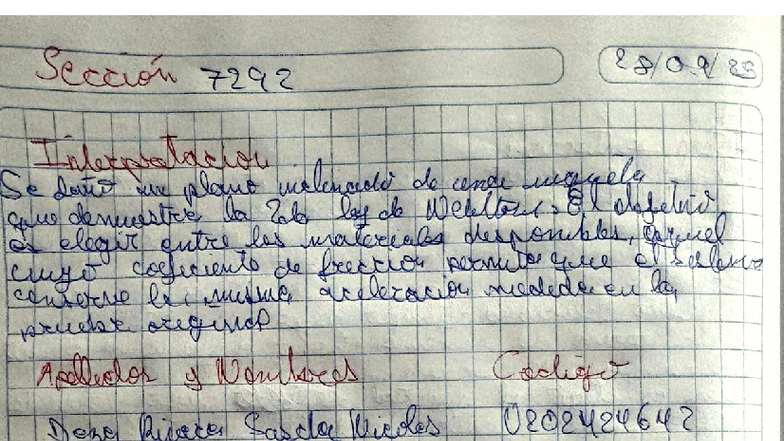 Sección 7292
28/09/25
Interpretacion
Se dañó un plano inclinado de una maqueta
que demuestra la 2da ley de Newton. El objetivo
es elegir entre los materiales disponibles, aquel
cuyo coeficiente de friccion permita que el sistema
conserve la misma aceleracion medida en la
prueba original
Apellidos y Nombres Codigo
Nicolas U202424642